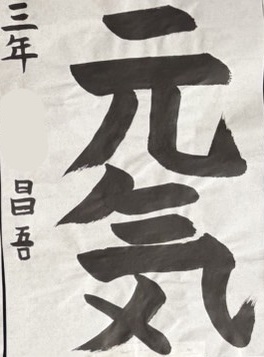 元気
三年
昌吾